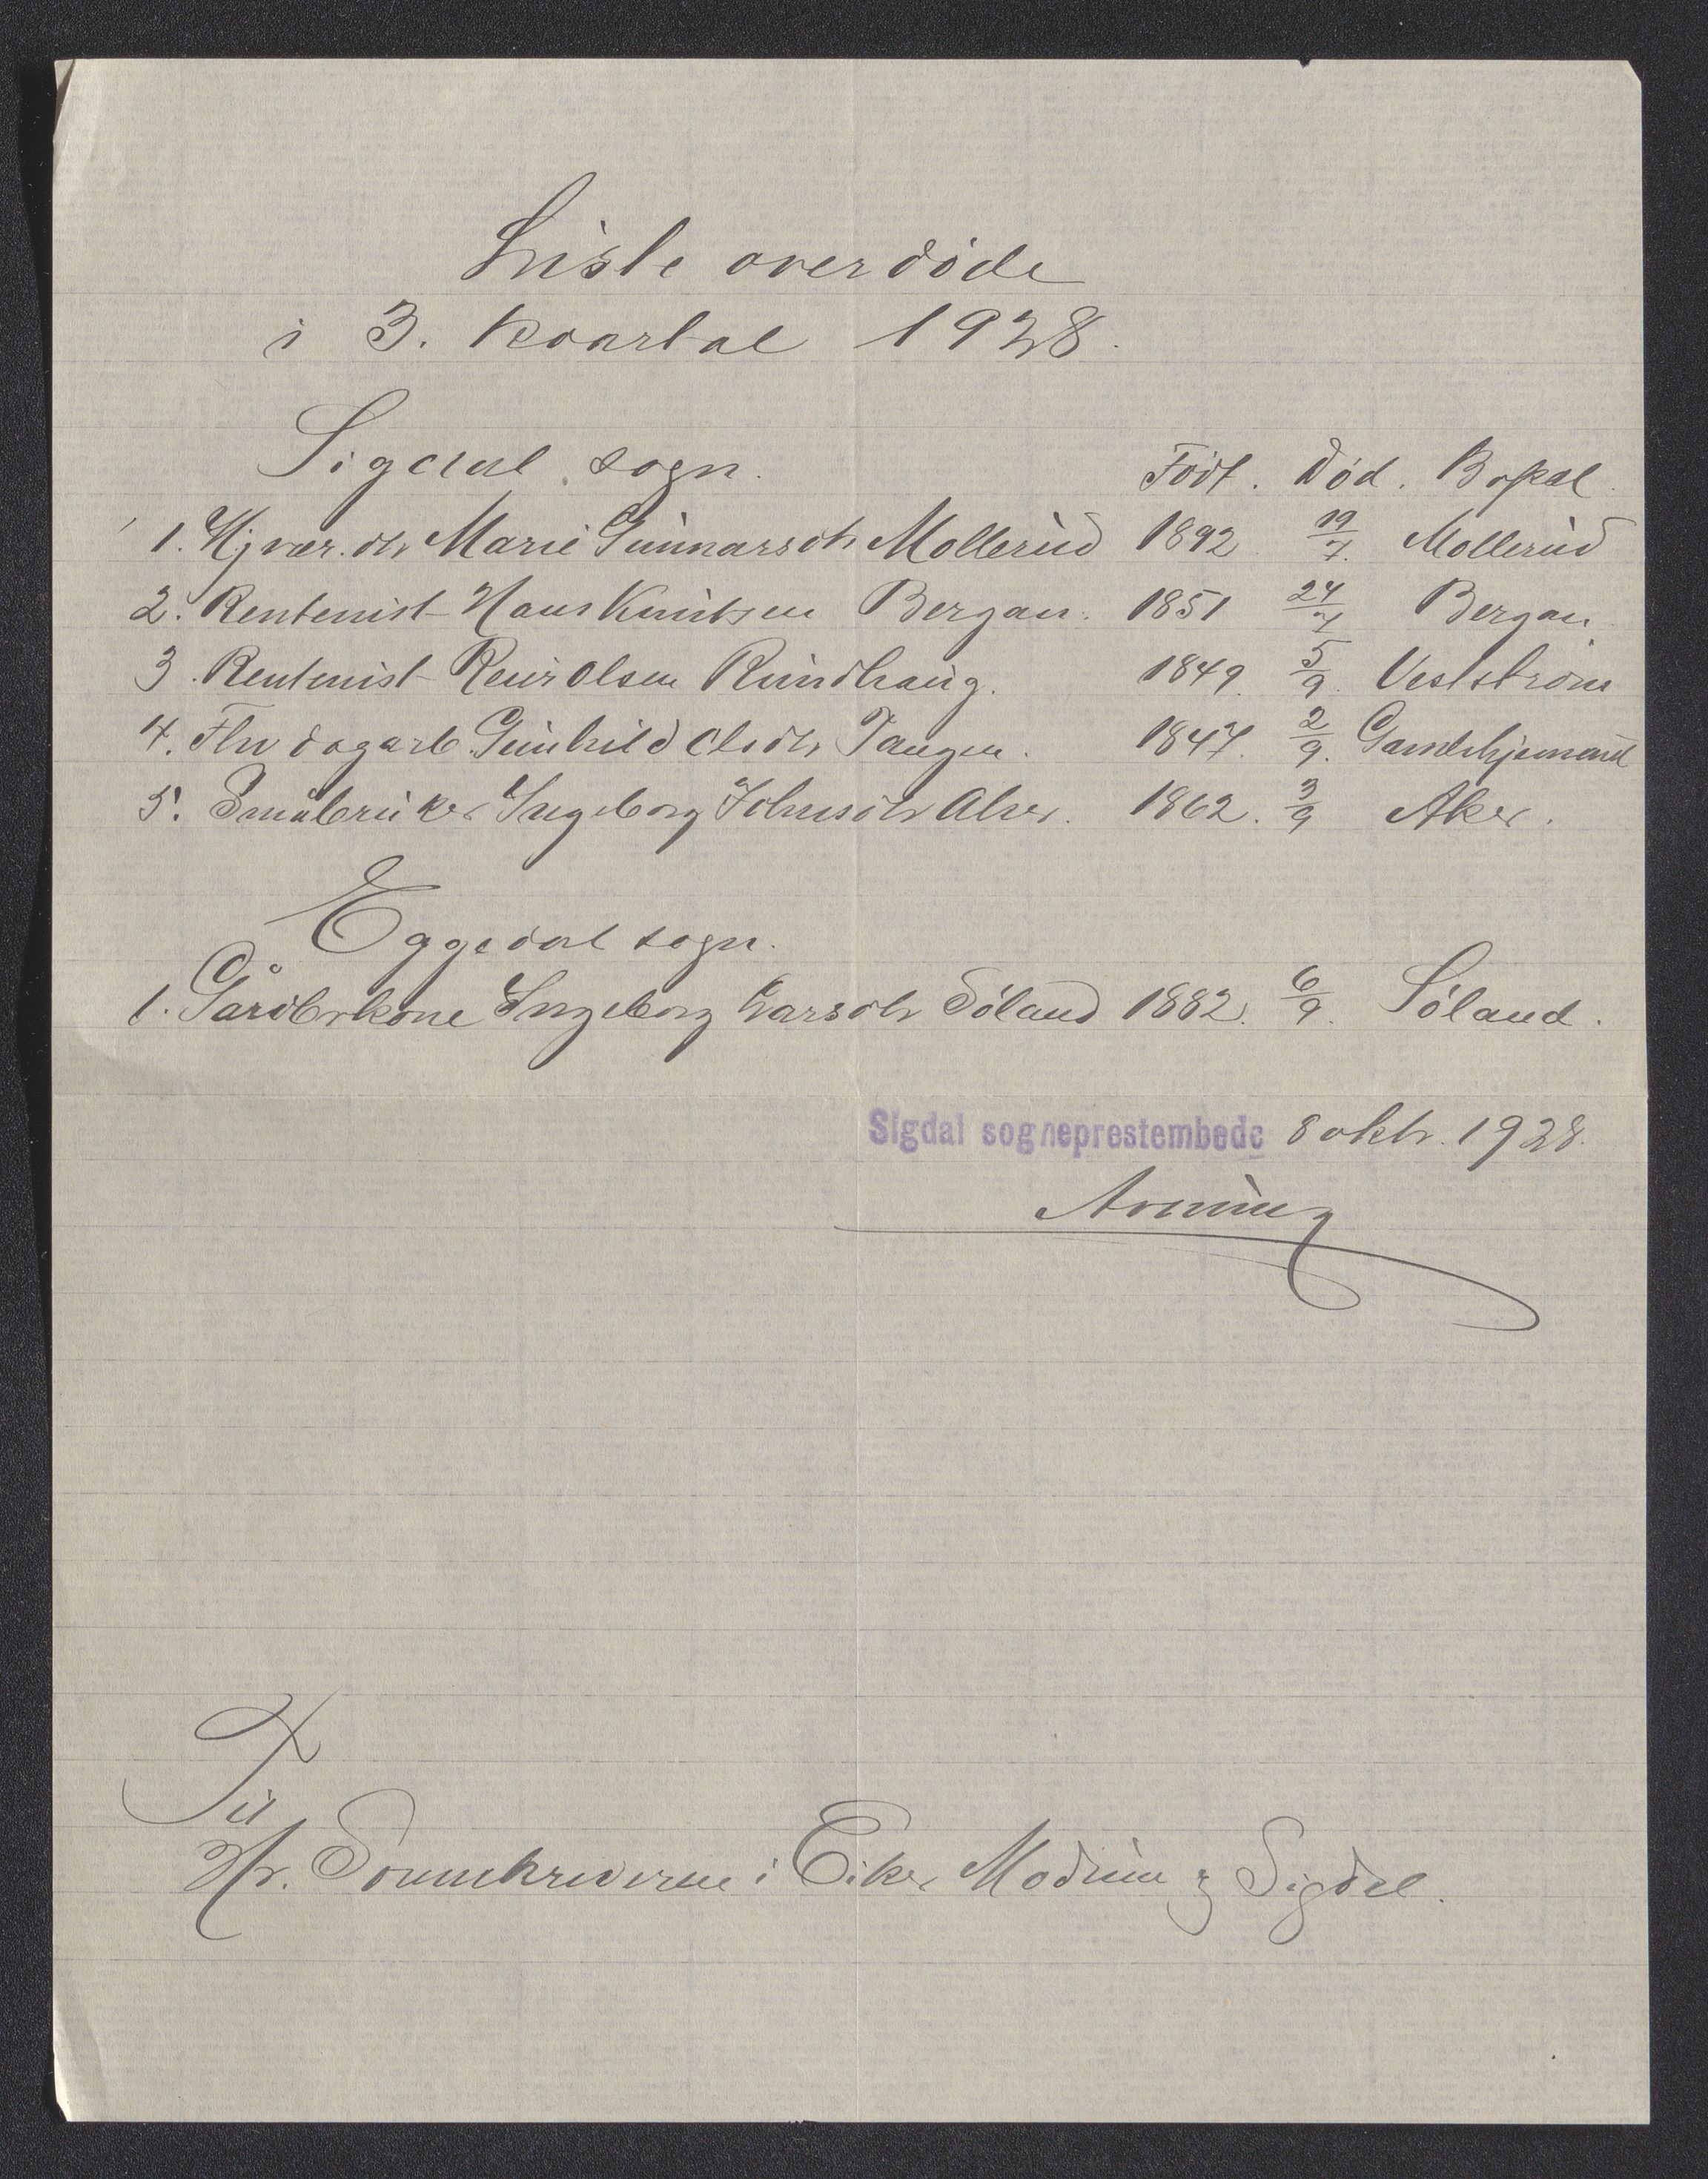 Liste over døde
i 3. kvartal 1928.
Sigdal sogn. Født. Død. Bopæl.
1. Hjvær. dtr Marie Gunnarsdtr Mollerud 1892 19/7. Mollerud
2. Rentenist Hans Knutsen Bergan. 1851 24/7 Bergan
3. Rentenist Reier Olsen Rundhaug. 1849. 5/9. Veststrøm
4. Fhv dagarb. Gunhild Olsdtr Tangen. 1847. 2/9. Gamlehjemmet
5. Småbruker Ingeborg Johnsdtr Aker. 1862. 3/9 Aker.
Eggedal sogn.
1. Gårdbrkone Ingeborg Larsdtr Søland 1882. 6/9. Søland.
Sigdal sogneprestembede 8 oktr. 1928.
Til
Hr. Sorenskriveren i Eiker Modum og Sigdal.